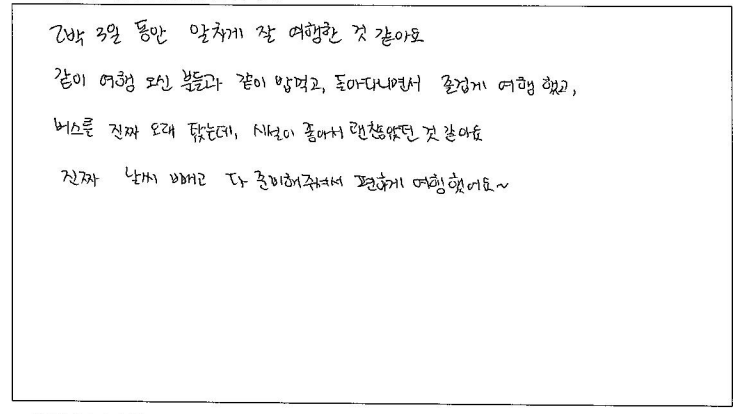 2박 3일 동안 알차게 잘 여행한 것 같아요
같이 여행 오신 분들과 같이 밥먹고, 돌아다니면서 즐겁게 여행 했고,
버스를 진짜 오래 탔는데, 시설이 좋아서 괜찮았던 것 같아요
진짜 날씨 빼고 다 준비해주셔서 편하게 여행했어요~